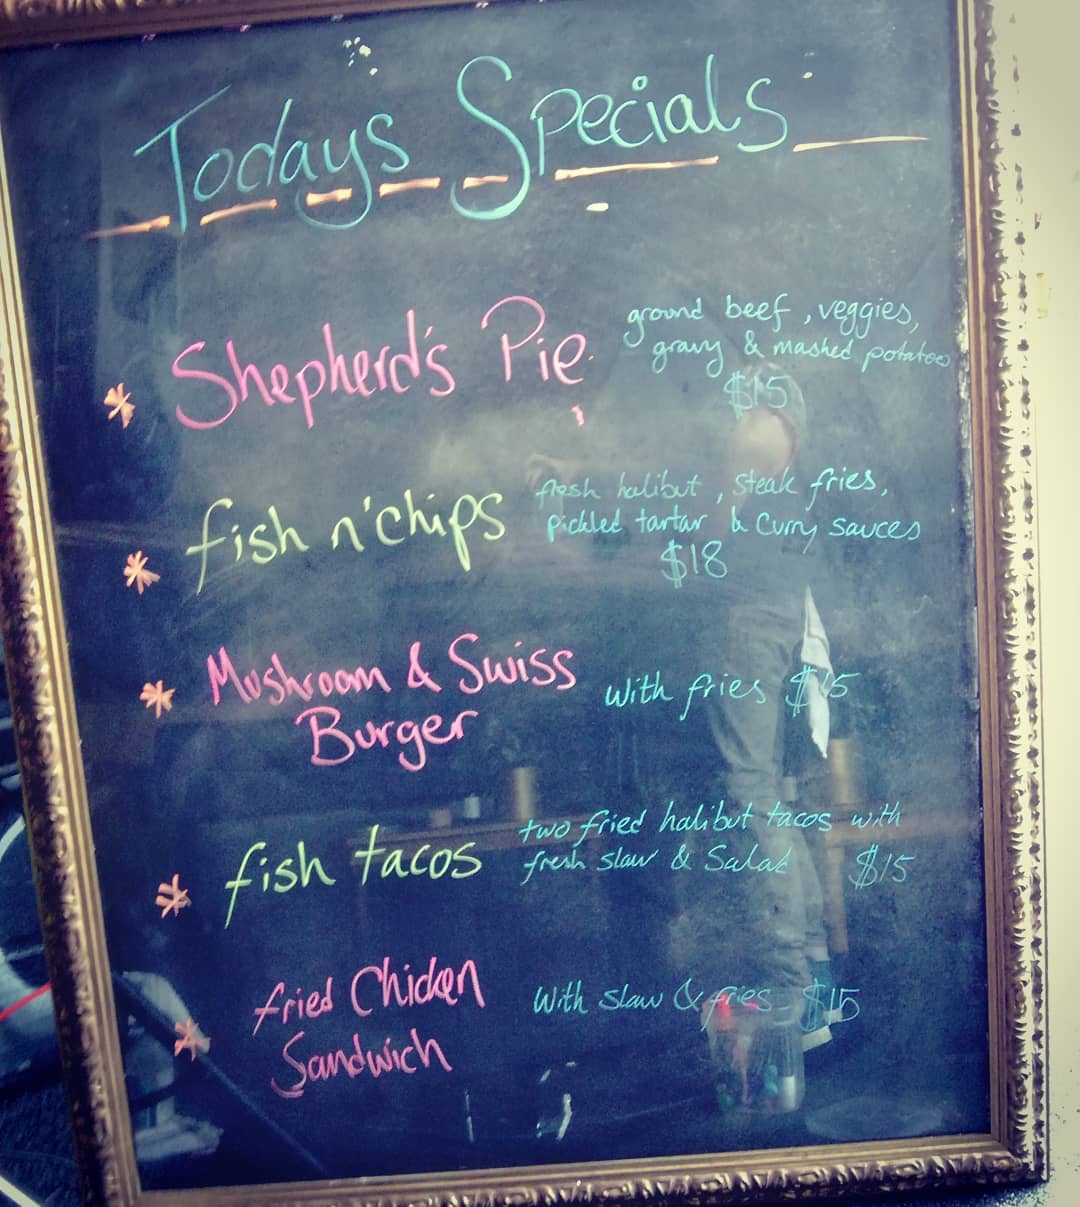 Todays Specials
* Shepherd's Pie
ground beef, veggies,
gravy & mashed potatoes
$15
* fish n'chips
fresh halibut, steak fries,
pickled tartar & curry sauces
$18
* Mushroom & Swiss
Burger
with fries $15
* fish tacos
two fried halibut tacos with
fresh slaw & Salad $15
* fried Chicken
Sandwich
with slaw & fries - $15